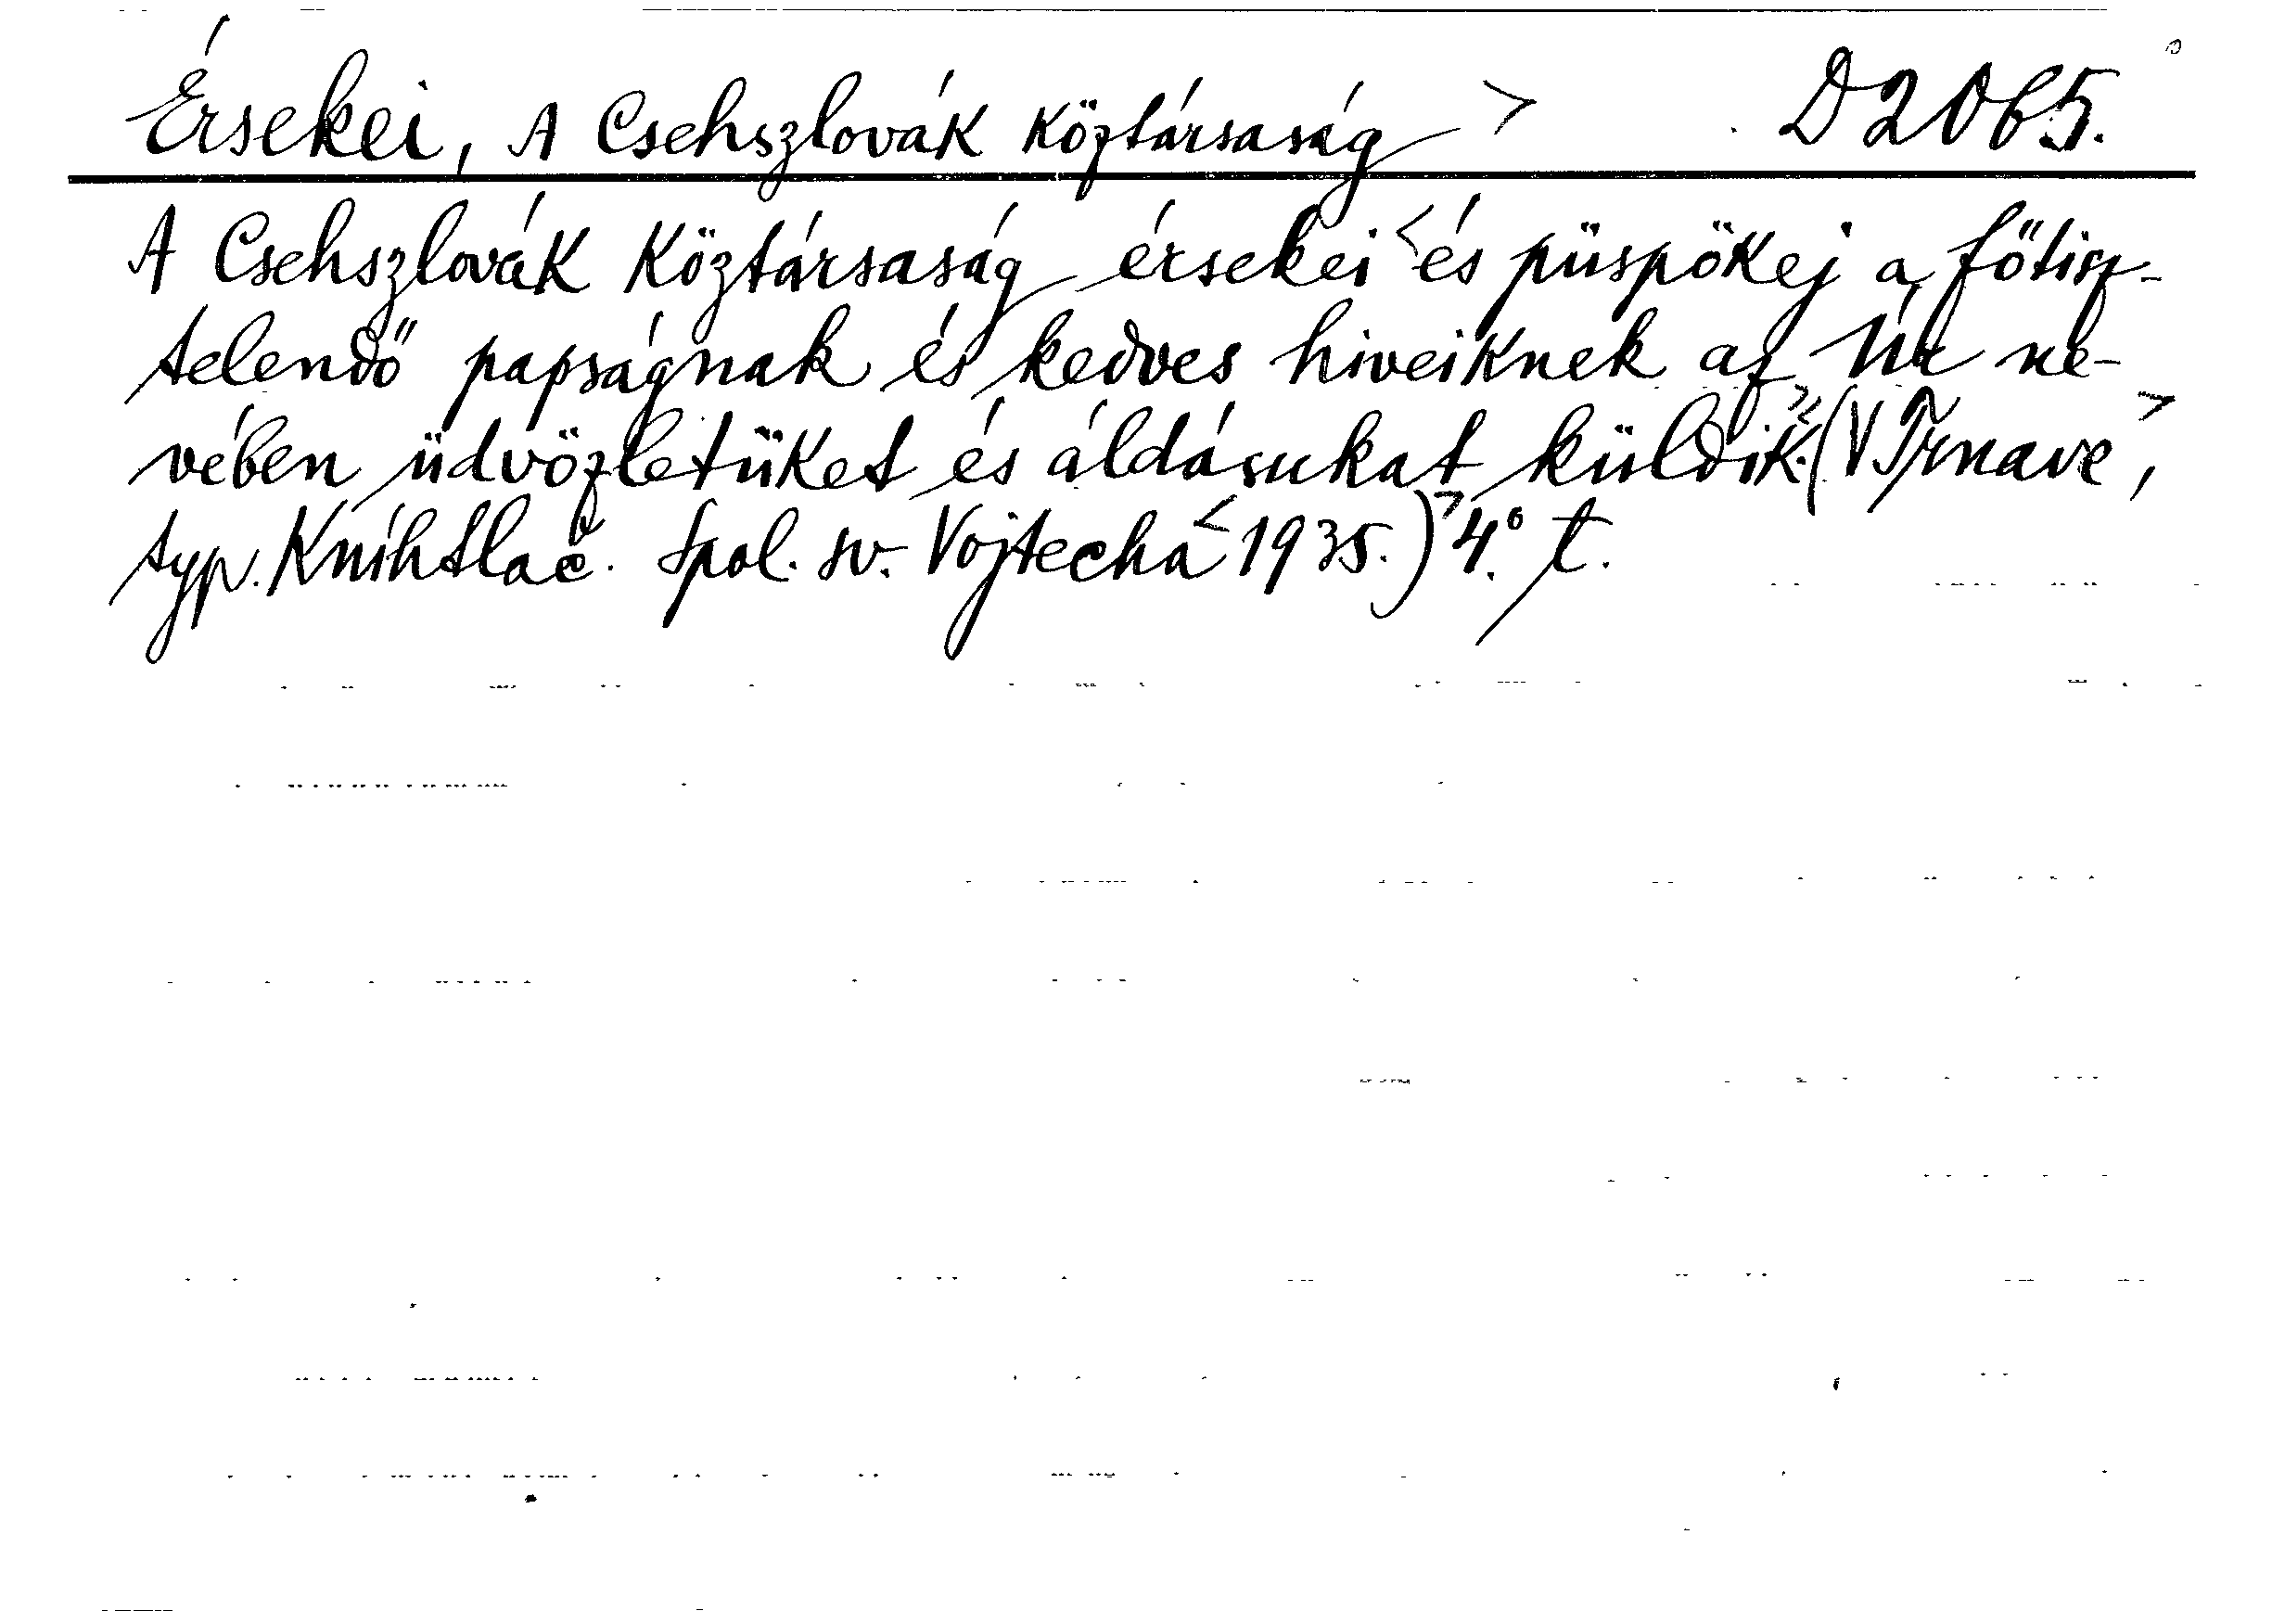 Érsekei, A Csehszlovák Köztársaság > D2065.
A Csehszlovák Köztársaság érsekei < és püspökei a főtisz-
telendő papságnak és kedves hiveiknek az Úr ne-
vében üdvözletüket és áldásukat küldik. > < (V Trnave, >
typ. Kníhtlač. Spol. sv. Vojtecha < 1935.) > 4.° t.